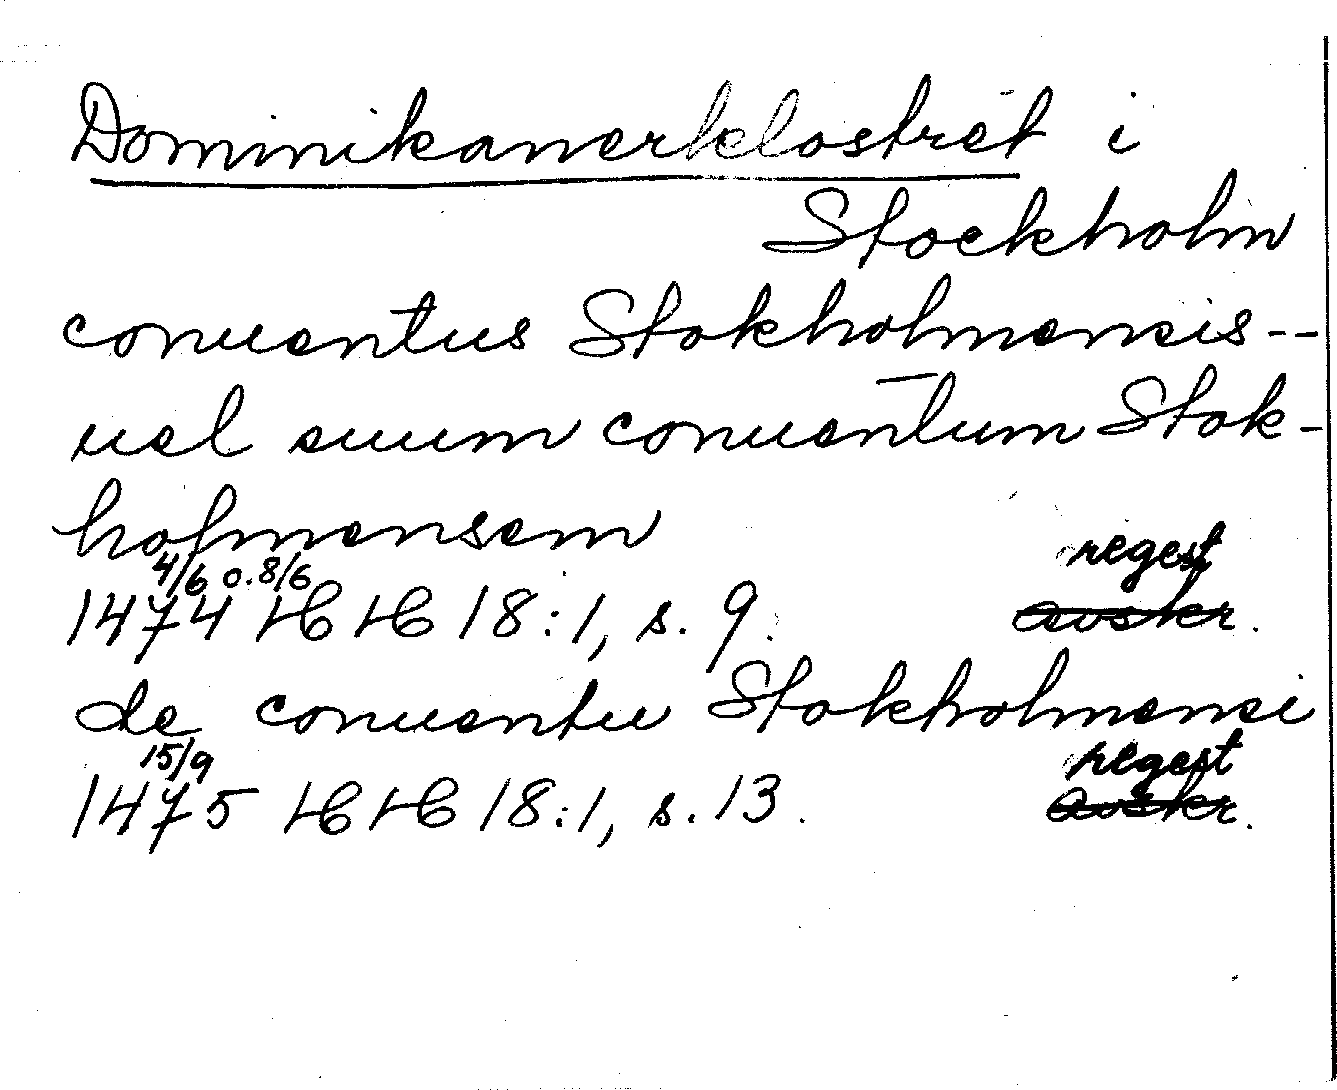 Dominikanerklostret i
Stockholm
conuentus Stokholmensis--
uel suum conuentum Stok-
holmensem
4/6 o. 8/6 regest
1474 HH 18:1, s. 9. avskr.
de conuentu Stokholmensi
15/9 regest
1475 HH 18:1, s. 13. avskr.